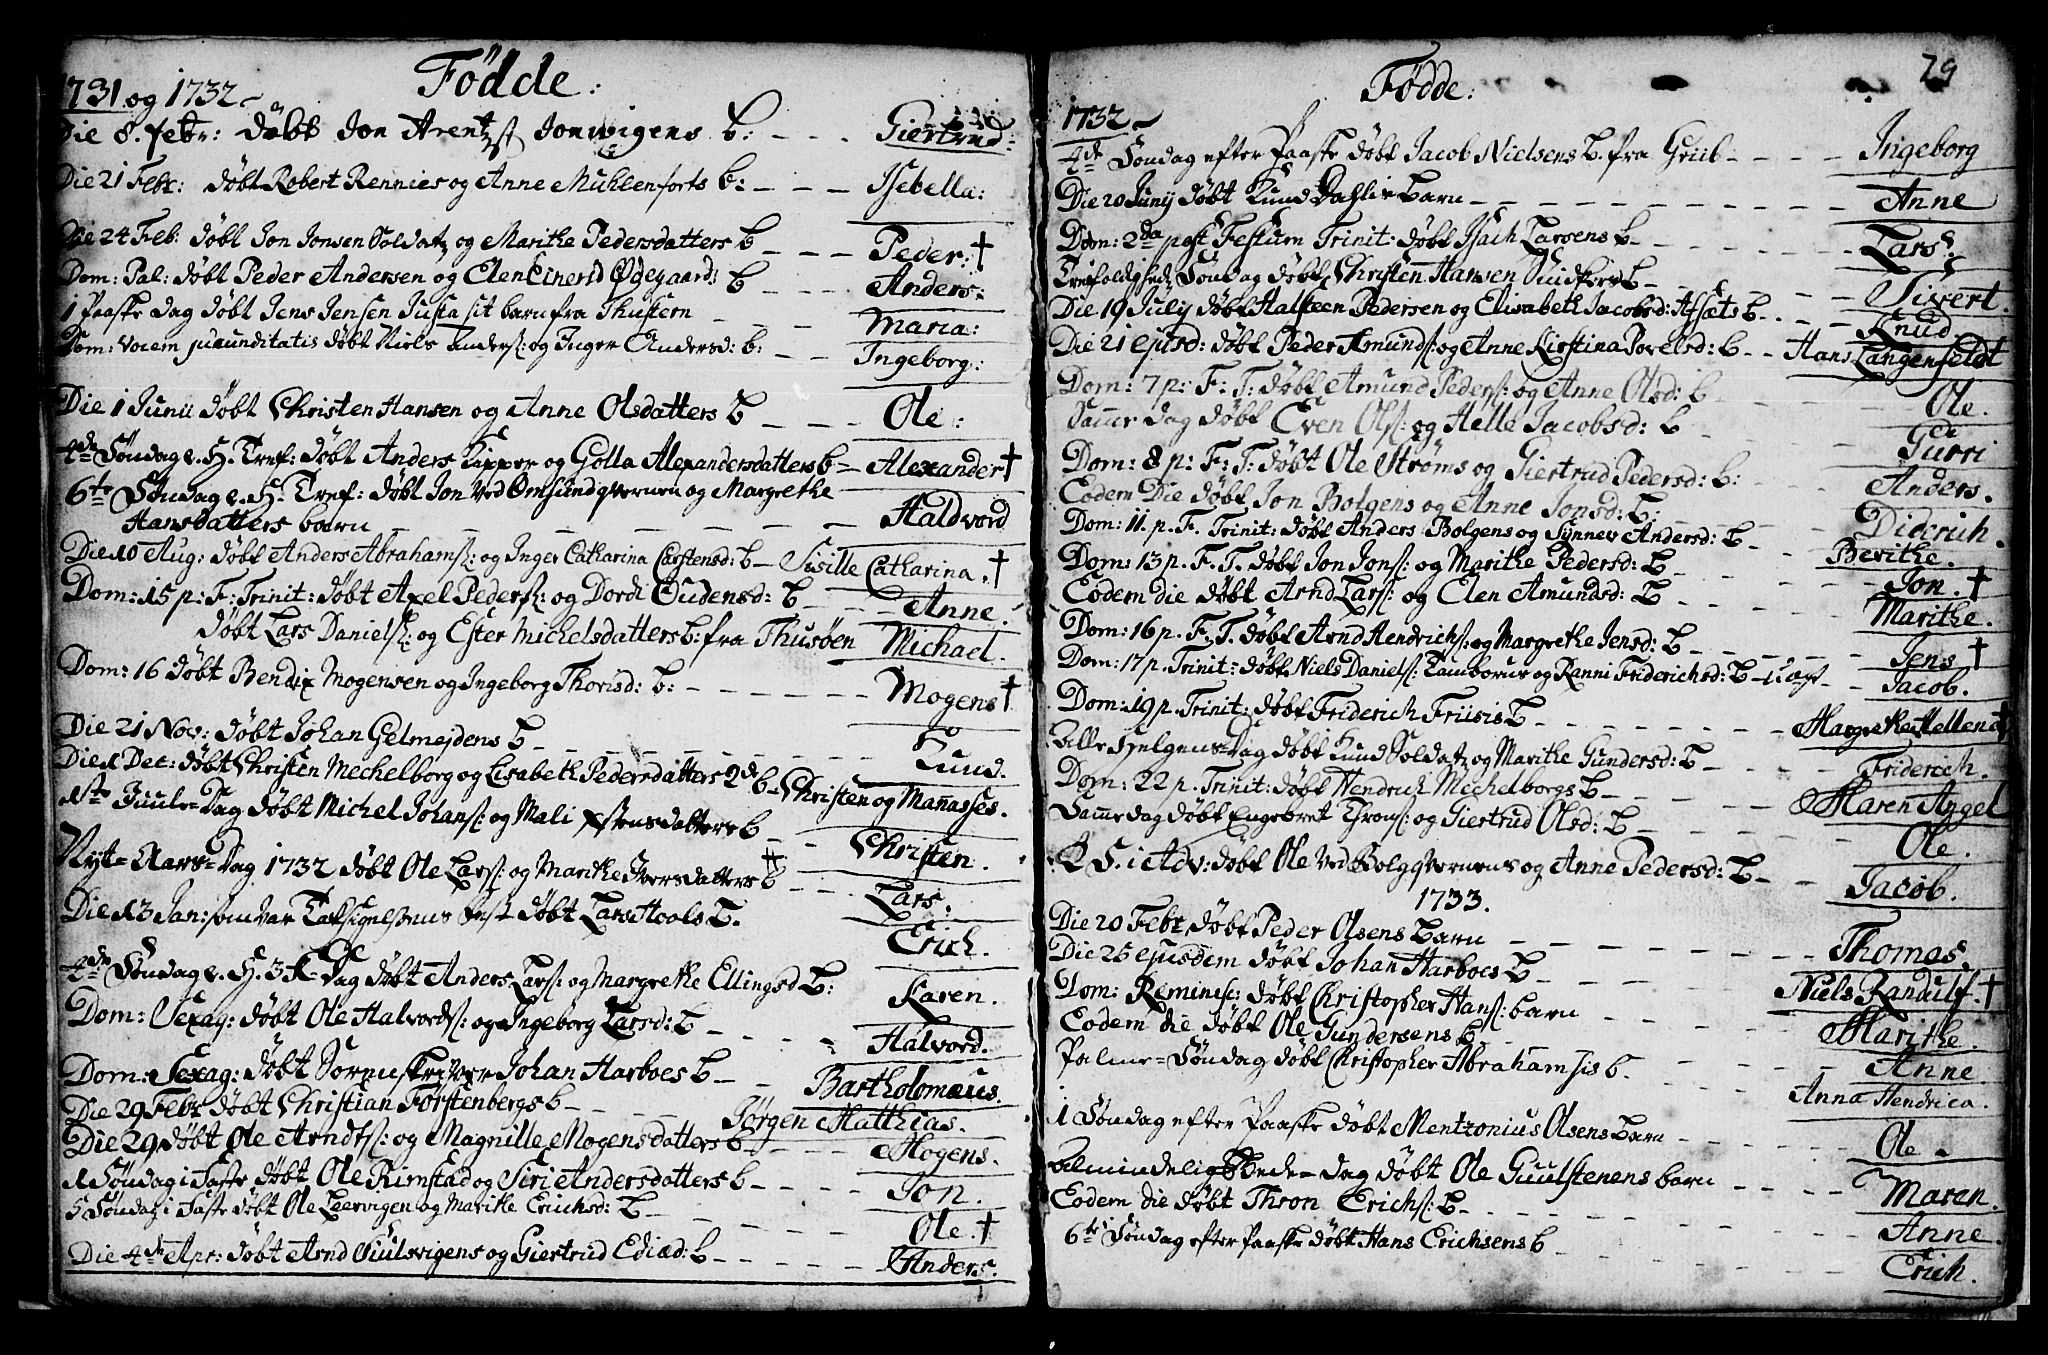 Fødde:
1731 og 1732
Die 8. febr: døbt Jon Arentzst Jonvigens b: Giertrud:
Die 21 Febr: døbt Robert Rennies og Anne Muhlenforts b: Isebella:
Die 24 Feb: døbt Jon Jonsen Soldatz og Marithe Pedersdatters b Peder: †
Dom: Pal: døbt Peder Andersen og Elen Einersd Ødegaard: b Anders:
1 Paaske dag døbt Jens Jensen Justa sit barn fra Thustern Maria:
Dom: vocem jucunditatis døbt Niels Anders: og Inger Andersd: b: Ingeborg:
Die 1 Junii døbt Christen Hansen og Anne Olsdatters b Ole:
4de Søndag e. H. Tref: døbt Anders Kipper og Golla Alexandersdatters b Alexander †
6te Søndag e. H. Tref: døbt Jon ved Omsundqvernen og Margrethe
Hansdatters barn Haldvord
Die 10 Aug: døbt Anders Abrahams: og Inger Catharina Carstensd: b Sisille Catharina. †
Dom: 15 p: F: Trinit: døbt Axel Peders: og Dordi Oudensd: b Anne.
døbt Lars Daniels: og Ester Michelsdatters b: fra Thusøen Michael.
Dom: 16 døbt Bendix Mogensen og Ingeborg Thorisd: b: Mogens †
Die 21 Nov: døbt Johan Gelmeydens b Knud.
Die 1 Dec: døbt Christen Mechelborg og Lisabeth Pedersdatters 2de b Christen og Manasses.
1ste Juule-Dag døbt Michel Johans: og Mali Estensdatters b Christen.
Nyt-Aars-Dag 1732 døbt Ole Lars: og Marithe Iversdatters b Lars.
Die 13 Jan: som var Taksigelsens fest døbt Lars Hools b. Erich.
4de Søndag e. H. 3 K-Dag døbt Anders Lars: og Margrethe Ellingsd b: Karen.
Dom: Sexag: døbt Ole Halvords: og Ingeborg Larsd: b Halvord.
Dom: Sexag: døbt Sorenskriver Johan Harboes b Bartholomæus.
Die 29 Febr døbt Christian Førstenbergs b Jørgen Matthias.
Die 29 døbt Ole Arndts: og Magnille Mogensdatters b Mogens.
1 Søndag i Faste døbt Ole Rimstad og Siri Andersdatters b Jon.
5 Søndag i Faste døbt Ole Leervigen og Marithe Erichsd: b Ole. †
Die 4de Apr: døbt Arnd Juulsvigens og Giertrud Ediæd: b Anders.
Fødde:
29
1732
4de Søndag efter Paaske døbt Jacob Nielsens b. fra Griib Ingeborg
Die 20 Juny døbt Knud Dahlie barn Anne
Dom: 2da post Festum Trinit: døbt Isach Larsens b Lars.
Trefoldigheds Søndag døbt Christen Hansen b Sivert.
Die 19 July døbt Halsteen Pedersen og Elisabeth Jacobsd: Afsæts b Knud
Die 21 ejusd: døbt Peder Asmunds: og Anne Kirstina Povelsd: b Hans Langenfeldt
Dom: 7 p: F: T: døbt Amund Peders: og Anne Olsd: b Ole.
Samme dag døbt Even Ols: og Helle Jacobsd: b Gurri
Dom: 8 p: F: T: døbt Ole Strøms og Giertrud Pedersd: b: Anders.
Eodem Die døbt Jon Bolgens og Anne Jonsd: b: Diderich.
Dom: 11. p. F. Trinit: døbt Anders Bolgens og Synnev Andersd: b Berithe.
Dom: 13 p. F. T. døbt Jon Jons: og Marithe Pedersd: b Jon. †
Eodem die døbt Arnd Lars: og Elen Amundsd: b Marithe.
Dom: 16 p. F. T. døbt Arnd Hendrichs: og Margrethe Jensd: b Jens †
Dom: 17 p. Trinit: døbt Niels Daniels: Tambours og Ranni Friderichsd: b Jacob.
Dom: 19 p. Trinit: døbt Friderich Friisis b Margrethe Hellena †
Alle Helgens-Dag døbt Knud Soldatz og Marithe Gundersd: b Friderich.
Dom: 22 p. Trinit: døbt Hendrich Mechelborgs b Maren Angel
Samme dag døbt Engebret Throns: og Giertrud Olsd: b Ole.
2 S. i Adv: døbt Ole ved Bolgqvernens og Anne Pedersd: b Jacob.
1733.
Die 20 Febr døbt Peder Olsens barn Thomas.
Die 25 ejusdem døbt Johan Harboes b Niels Randulf. †
Dom: Reminisc: døbt Christopher Hans: barn Marithe.
Eodem die døbt Ole Gundersens b Anne
Palme-Søndag døbt Christopher Abrahamsis b Anna Hendrica.
1 Søndag efter Paaske døbt Mentzonius Olsens barn Ole.
Almindelig Bede-dag døbt Ole Guulstenens barn Maren.
Eodem die døbt Thron Erichs: b Anne.
6te Søndag efter Paaske døbt Hans Erichsens b Erich.